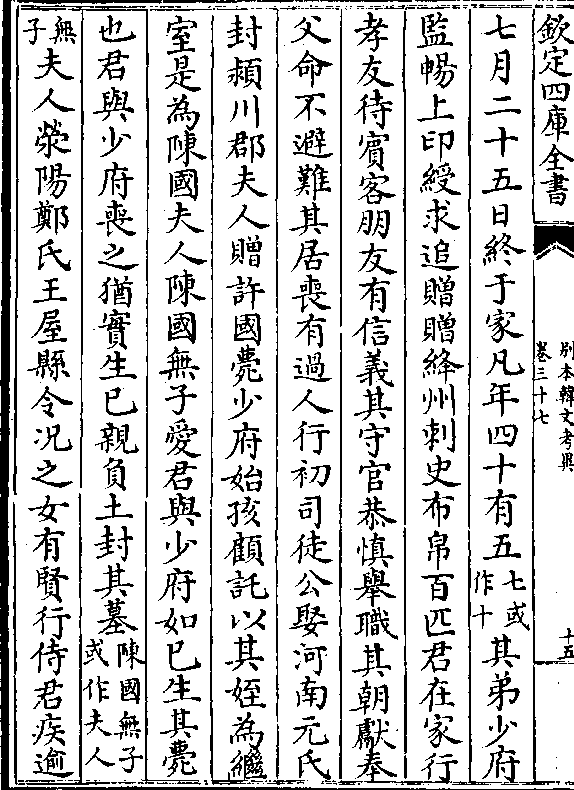 欽定四庫全書
別本韓文考異
卷三十七
十五
七月二十五日終于家凡年四十有五七或作十其弟少府
監暢上印綬求追贈贈絳州刺史布帛百匹君在家行
孝友待賓客朋友有信義其守官恭慎舉職其朝獻奉
父命不避難其居喪有過人行初司徒公娶河南元氏
封潁川郡夫人贈許國薨少府始孩顧託以其姪為繼
室是為陳國夫人陳國無子愛君與少府如已生其薨
也君與少府喪之猶實生已親負土封其墓陳國無子或作夫人
無子夫人滎陽鄭氏王屋縣令况之女有賢行侍君疾逾